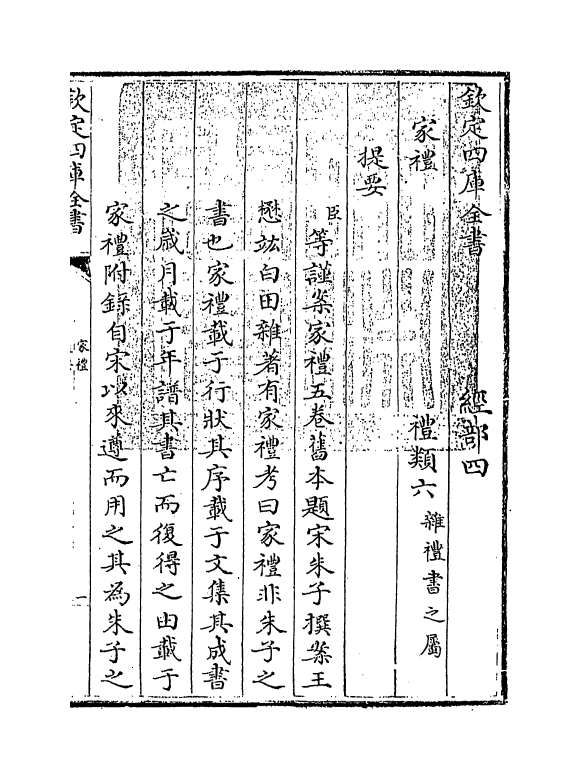 欽定四庫全書　經部四
家禮　禮類六　雜禮書之屬
提要
臣等謹案家禮五卷舊本題宋朱子撰案王
懋竑白田雜著有家禮考曰家禮非朱子之
書也家禮載于行狀其序載于文集其成書
之歲月載于年譜其書亡而復得之由載于
家禮附錄自宋以來遵而用之其為朱子之
欽定四庫全書
家禮
一